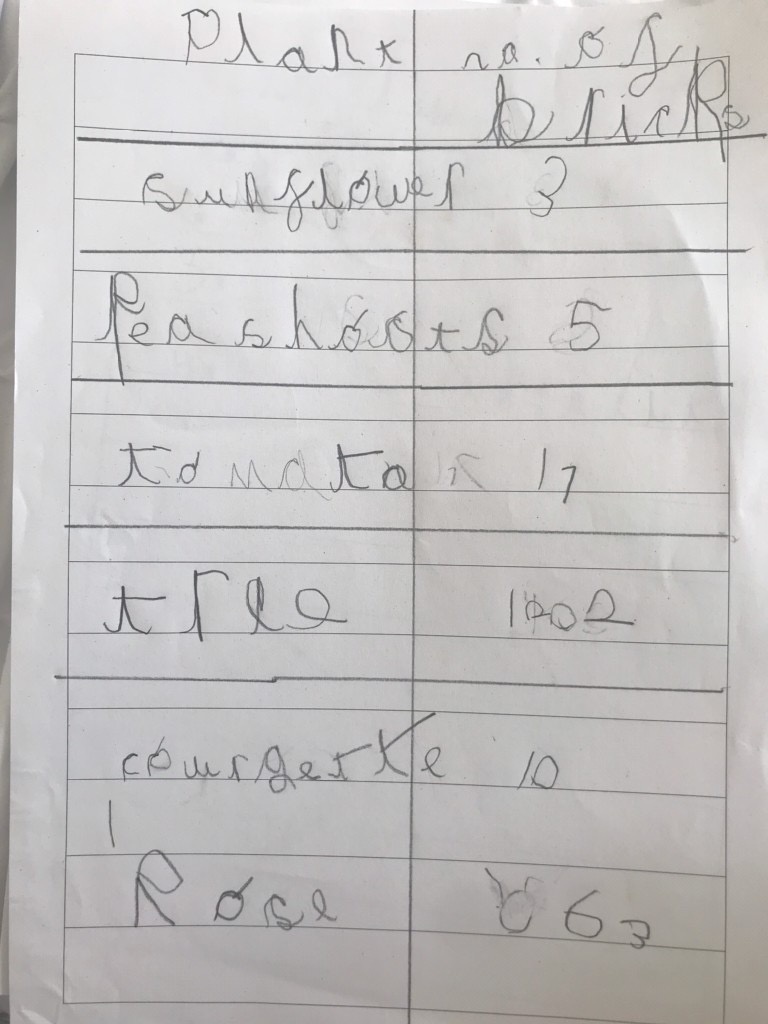 Plant no. of
bricks
sunflower 3
Pea shoots 5
tomato 17
tree
courgette 10
Rose 63